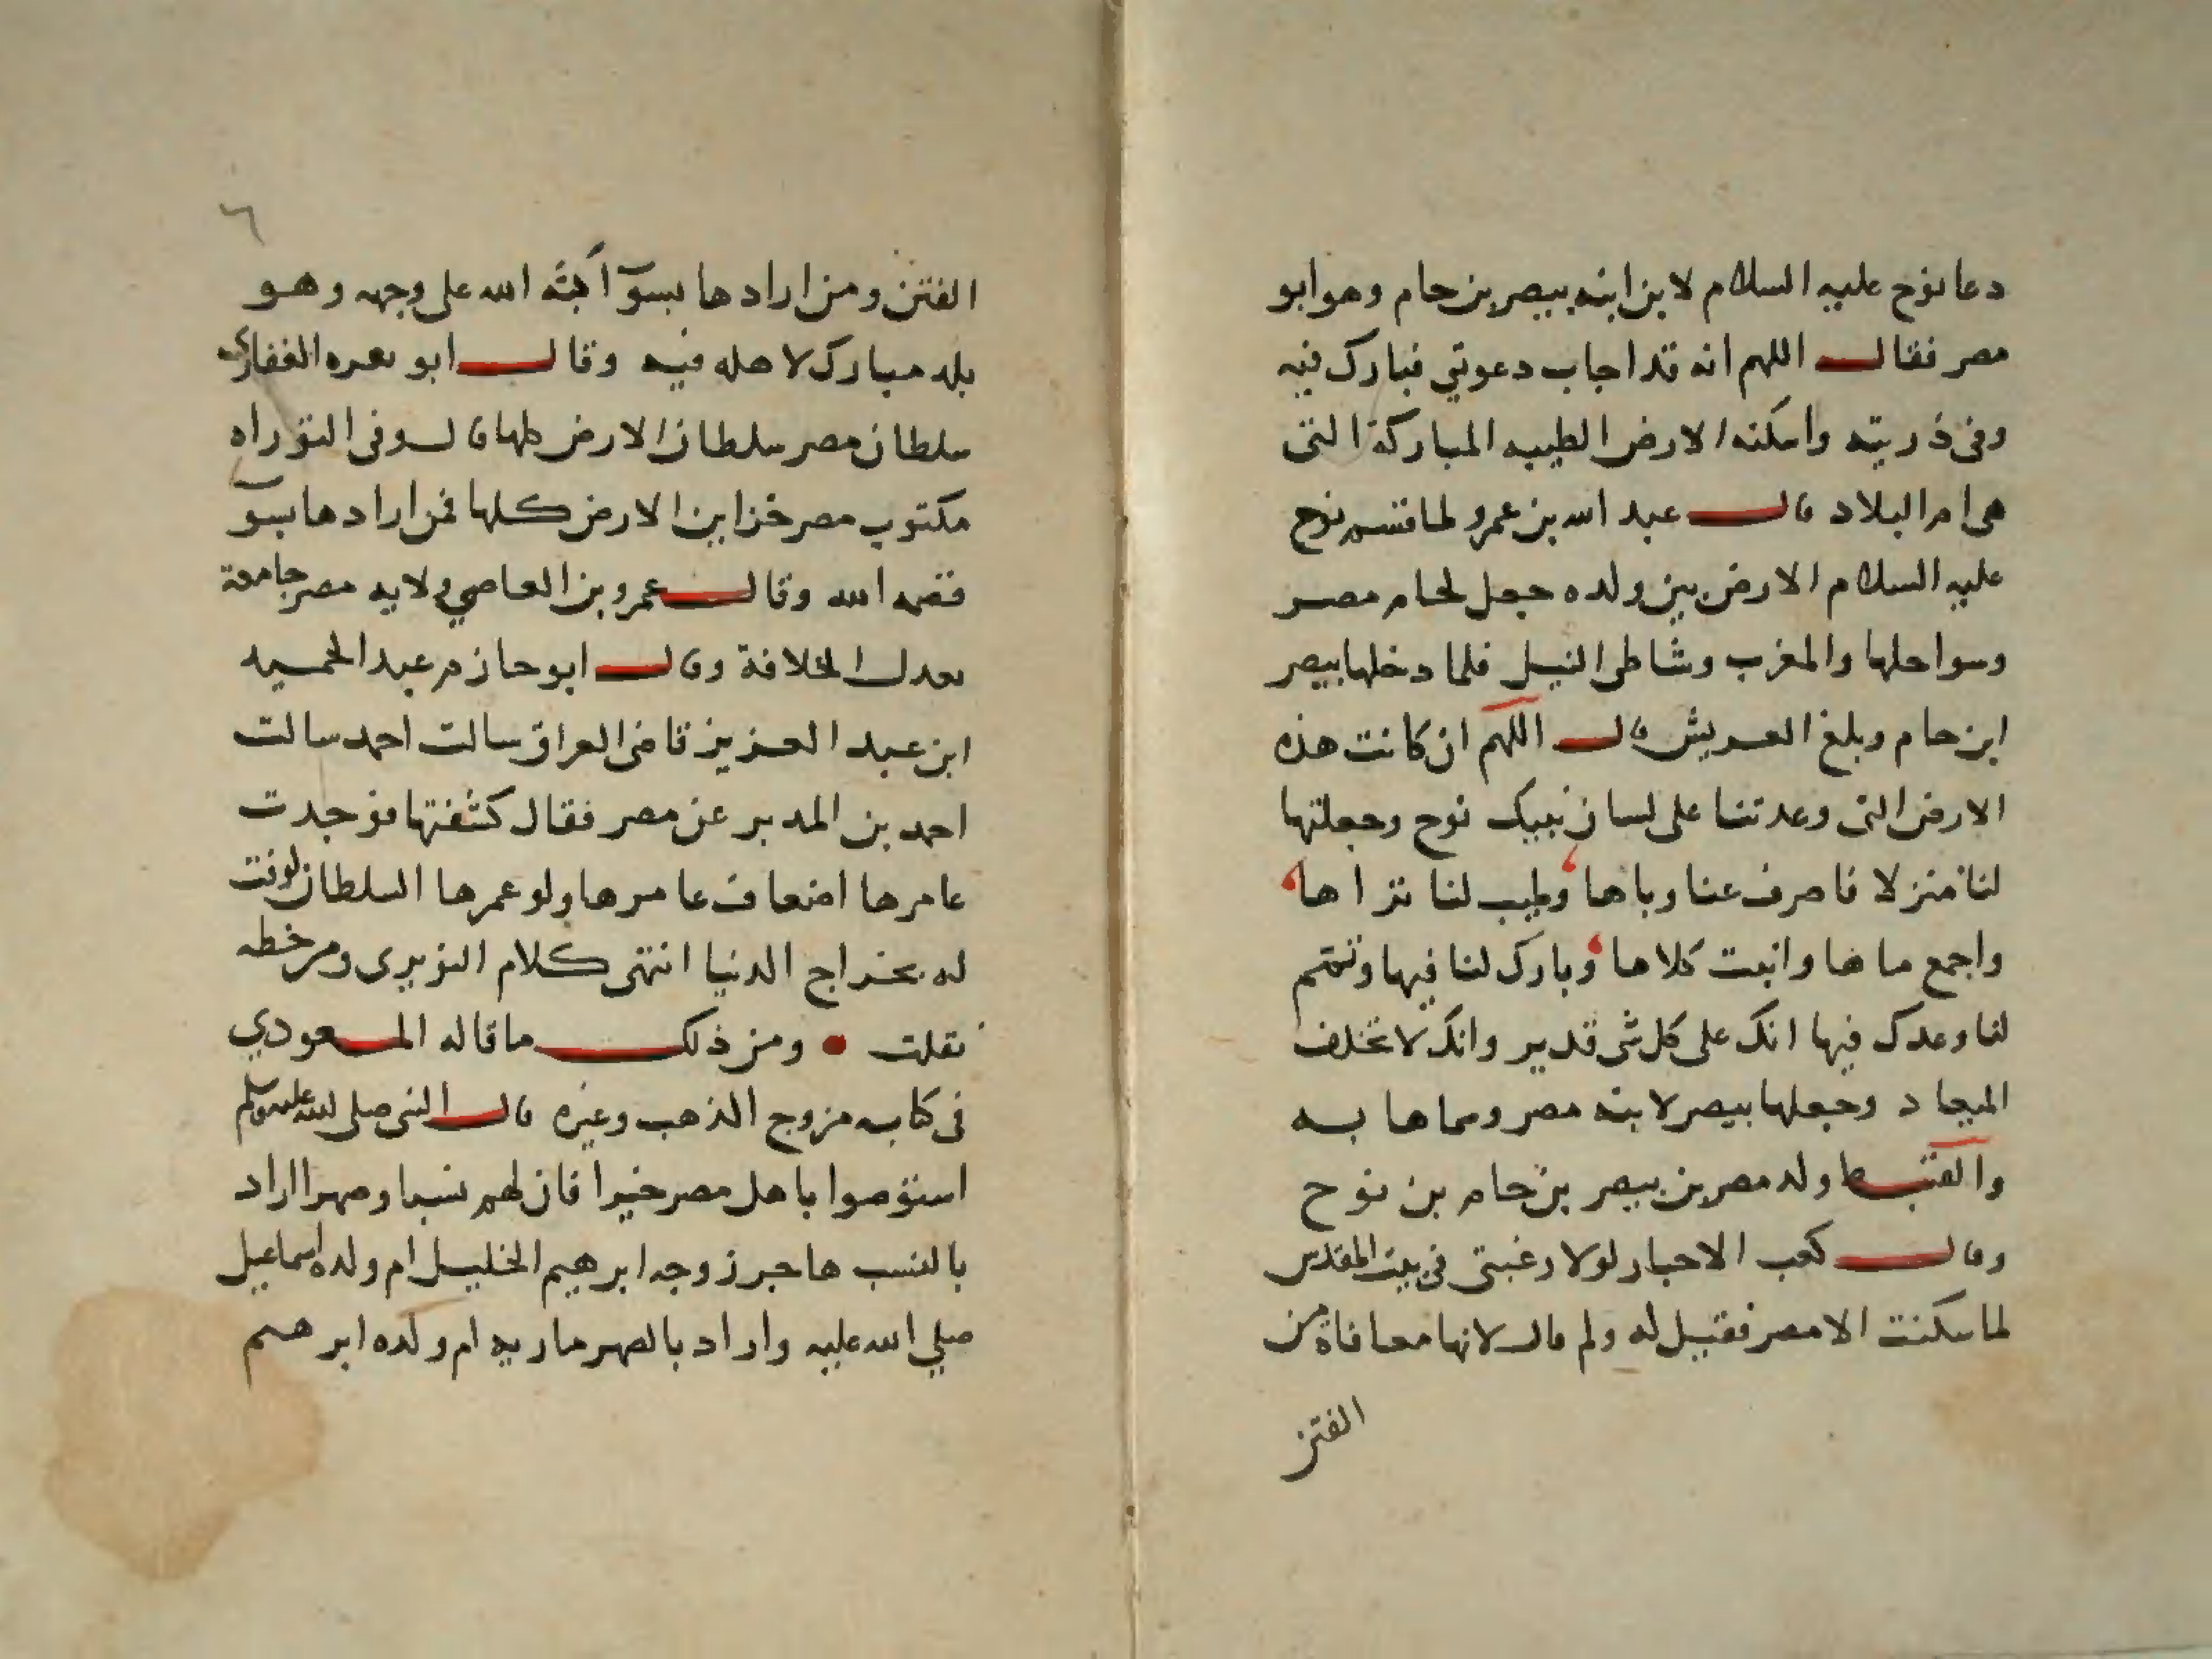 دعا نوح عليه السلام لابن ابنه بيصر بن حام وهو ابو
مصر فقال اللهم انه قد اجاب دعوتي فبارك فيه
وفى ذريته واسكنه الارض الطيبه المباركة التى
هى ام البلاد قال عبد الله بن عمرو لما قسم نوح
عليه السلام الارض بين ولده جعل لحام مصر
وسواحلها والمغرب وشاطى النيل فلما دخلها بيصر
ابن حام وبلغ العريش قال اللهم ان كانت هذه
الارض التى وعدتنا على لسان نبيك نوح وجعلتها
لنا منزلا فاصرف عنا وباها وطيب لنا ثراها
واجمع ماها وانبت كلاها وبارك لنا فيها وتمم
لنا وعدك فيها انك على كل شى قدير وانك لا تخلف
الميعاد وجعلها بيصر لابنه مصر وسماها به
والقبط ولد مصر بن بيصر بن حام بن نوح
وقال كعب الاحبار لولا رغبتى فى بيت المقدس
لما سكنت الا مصر فقيل له ولم قال لانها معافاة من
الفتن
٦
الفتن ومن ارادها بسوآ اكبه الله على وجهه وهو
بلد مبارك لاهله فيه وقال ابو بصره الغفارى
سلطان مصر سلطان الارض كلها قال وفى التوراه
مكتوب مصر خزاين الارض كلها فمن ارادها بسوٓ
قصمه الله وقال عمرو بن العاصي ولايه مصر جامعة
تعدل الخلافة وقال ابو حازم عبد الحميد
ابن عبد العزيز قاضى العراق سالت احمد سالت
احمد بن المدبر عن مصر فقال كشفتها فوجدت
عامرها اضعاف عامرها ولو عمرها السلطان لوفت
له بخراج الدنيا انتهى كلام النويرى ومن خطه
نقلت • ومن ذلك ما قاله المسعودي
فى كتابه مروج الذهب وغيره قال النبى صلى الله عليه وسلم
استوصوا باهل مصر خيرا فان لهم نسبا وصهرا اراد
بالنسب هاجر زوجه ابرهيم الخليل ام ولده اسماعيل
صلي الله عليه واراد بالصهر ماريه ام ولده ابرهيم